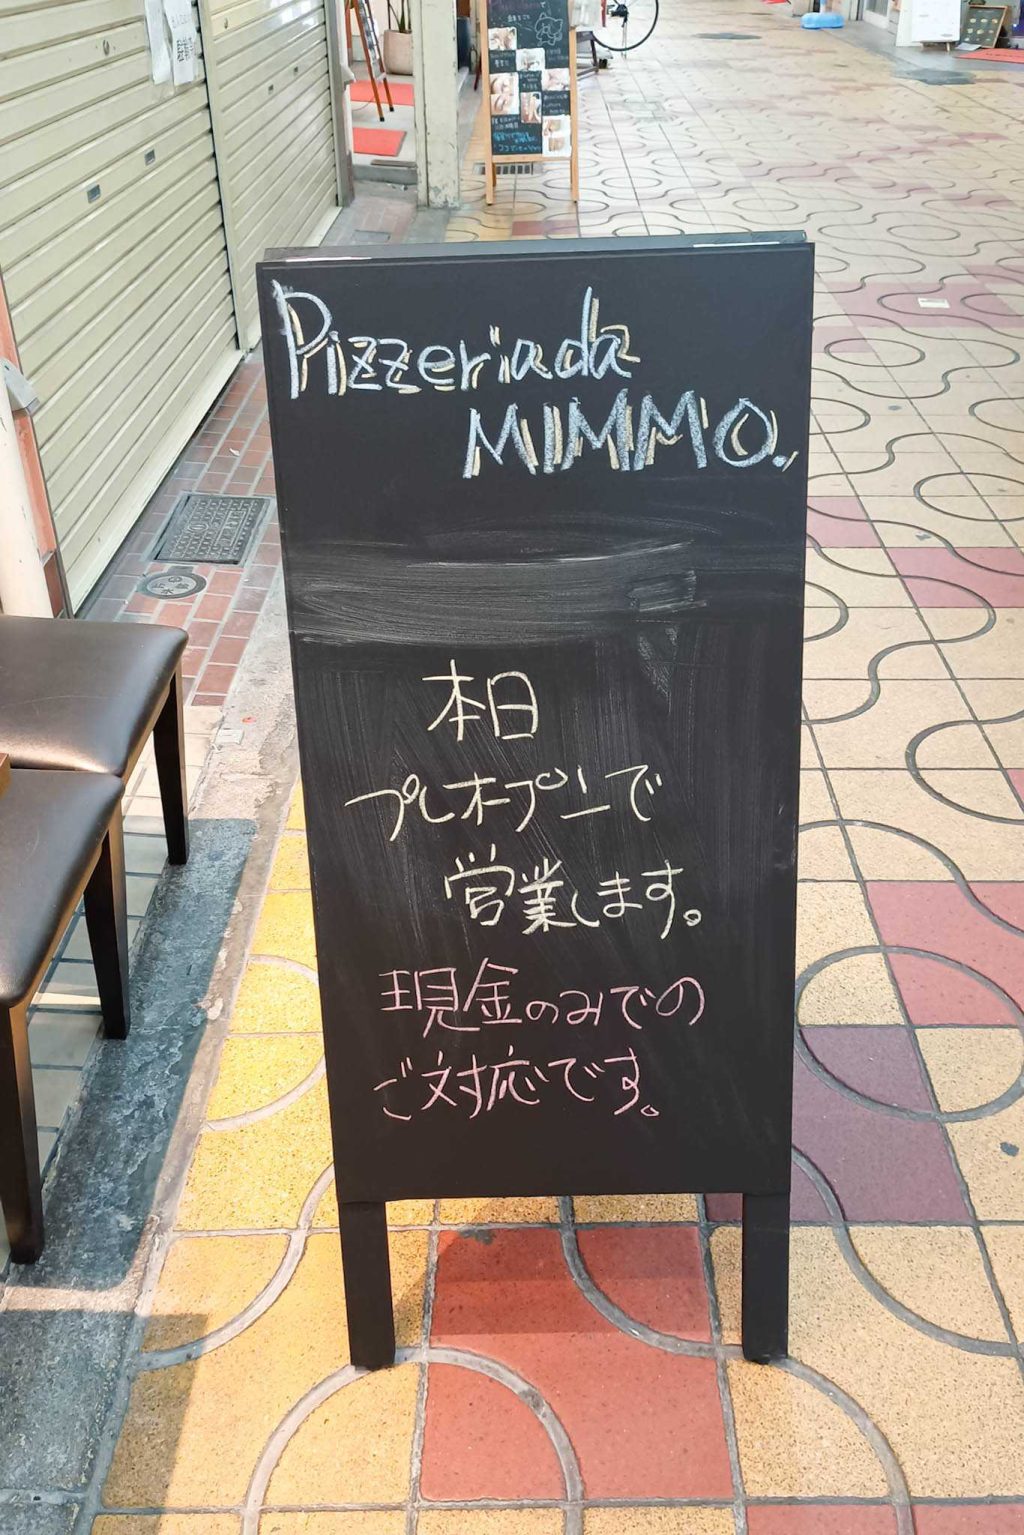 Pizzeria da
MIMMO.
本日
プレオープンで
営業します。
現金のみでの
ご対応です。